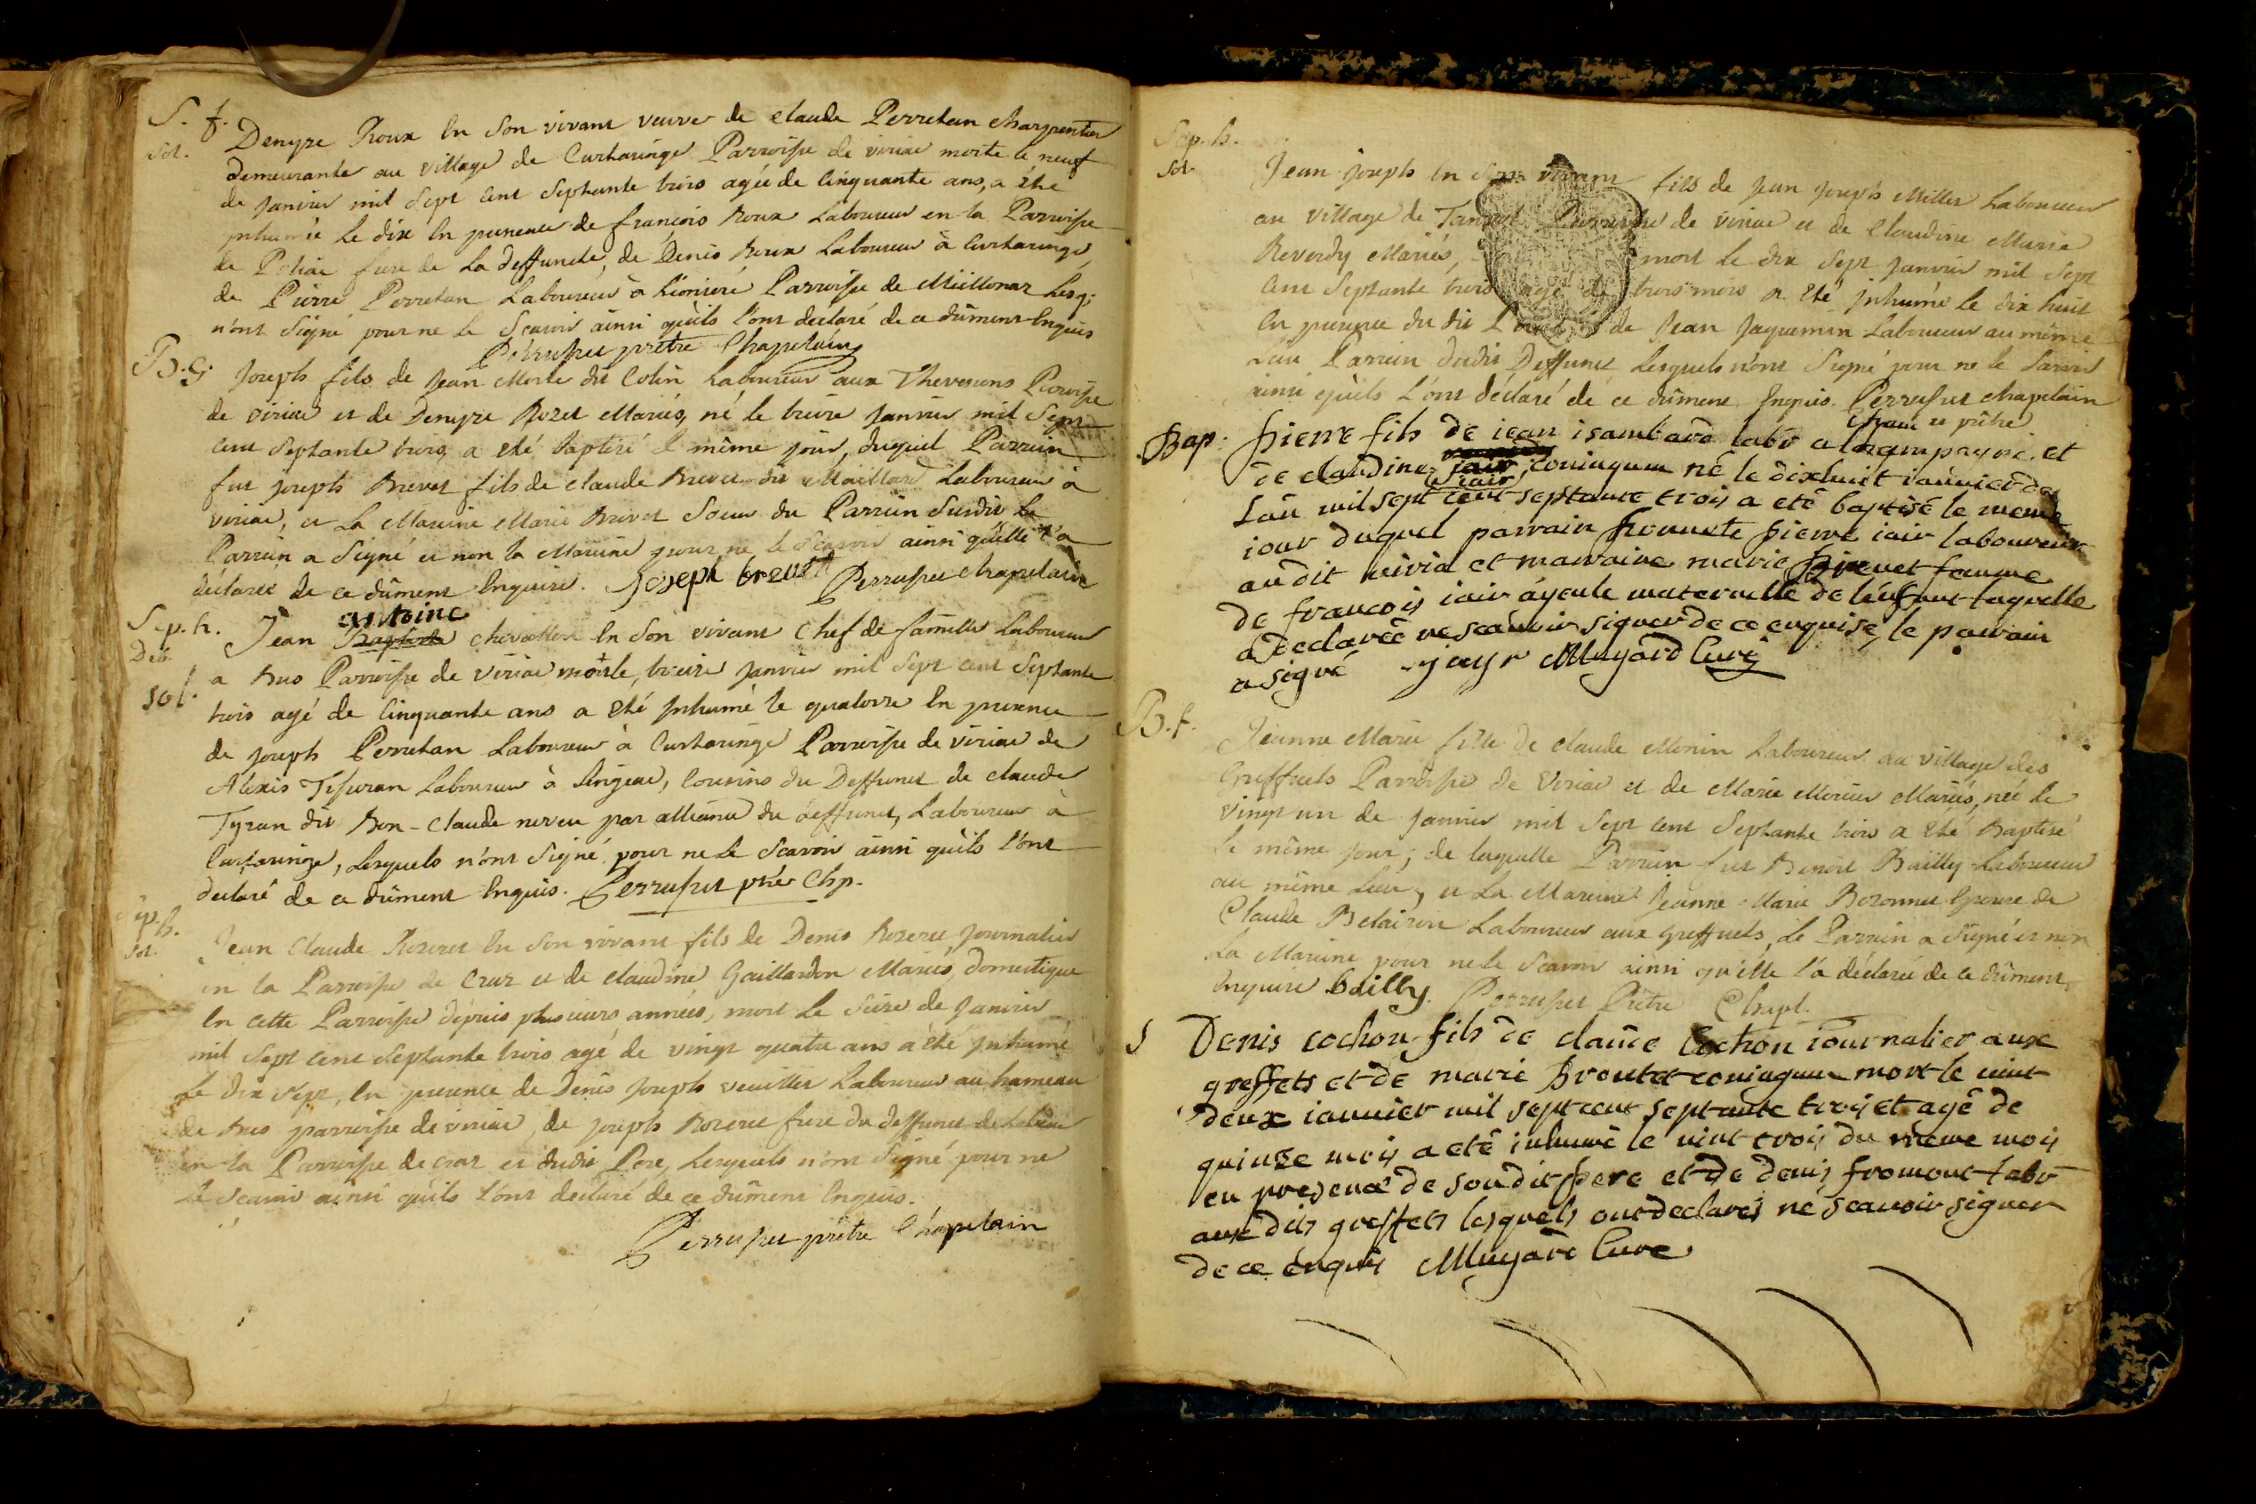 S. f.
sol.
Denyze Roux en son vivant veuve de claude Perretan charpentier
demeurante au village de Curtaringe Parroisse de viriac morte le neuf
de janvier mil sept cent septante trois agée de cinquante ans, a été
inhumée le dix en presence de francois Roux Laboureur en la Parroisse
de Poliac frere de La deffuncte, de Denis Roux Laboureur à Curtaringe
de Pierre Perretan Laboureur à Parroisse de Lesq.
n'ont signé pour ne le scavoir ainsi qu'ils l'ont declaré de ce dûment enquis
Perruset prêtre Chapelain
B. g.
Joseph fils de Jean Morle dit Colin Laboureur aux Parroisse
de viriac et de Denyze Rozet Mariés, né le treize janvier mil sept
cent septante trois, a été Baptisé le même jour, duquel Parrain
fut joseph Brevet fils de claude Brevet dit Maillard Laboureur à
viriac, et La Maraine Marie Brevet Soeur du Parrain susdit Le
Parrain a signé et non la Maraine pour ne le scavoir ainsi qu'elle l'a
déclarée de ce dûment enquise. Joseph brevet Perruset chapelain
Sep. h.
Deb.
sol.
antoine
Jean Baptiste en son vivant chef de famille Laboureur
a Bus Parroisse de viriac mort le, treize janvier mil sept cent septante
trois agé de cinquante ans a été inhumé le quatorze en presence
de joseph Perretan Laboureur à Curtaringe Parroisse de viriac de
Alexis Laboureur à cousins du Deffunct de claude
Tyran dit Bon-Claude neveu par alliance du deffunct, Laboureur à
Curtaringe, Lesquels n'ont signé pour ne le scavoir ainsi qu'ils l'ont
declaré de ce dûment enquis. Perruset ptre Chp.
Sep. h.
sol.
Jean Claude Rozeret en son vivant fils de Denis Rozeret journalier
en la Parroisse de Craz et de claudine Gaillardon Mariés, domestique
en cette Parroisse dépuis plusieurs années, mort le seize de janvier
mil sept cent septante trois agé de vingt quatre ans a été inhumé
Le dix sept, en presence de Denis joseph Laboureur au hameau
de Bus parroisse de viriac, de joseph Rozeret frere du deffunct
en la Parroisse de craz et dudit Pere, Lesquels n'ont signé pour ne
Le scavoir ainsi qu'ils l'ont declaré de ce dûment enquis.
Perruset prêtre Chapelain
Sep. h.
sol.
Jean joseph en son vivant fils de jean joseph Millet Laboureur
au village de Parroisse de viriac et de Claudine Marie
Reverdy Mariés, mort le dix sept janvier mil sept
cent septante trois agé de trois mois a été inhumé le dix huit
en presence du dit de Jean Jaquemin Laboureur au même
Lieu Parrain dudit Deffunct Lesquels n'ont signé pour ne le scavoir
ainsi qu'ils l'ont déclaré de ce dûment enquis. Perruset chapelain
et prêtre
Bap.
pierre fils de iean isambard labr a et
de claudine iair coniagum né le dixhuit iauvier de
Lan mil sept cent septante trois a eté baptisé le meme
iour duquel parrain honnete pierre iair laboureur
au dit viria et marraine marie brevet femme
de francois iair ayeule maternelle de lenfant laquelle
a declareé ne scauoir signer de ce enquise, le parrain
a signé jayr Muyard Curé
B. f.
Jeanne Marie fille de claude Monin Laboureur au village des
Greffets Parroisse de Viriac et de Marie Mariés, née le
vingt un de janvier mil sept cent septante trois a été Baptisé
le même jour; de laquelle Parrain fut Benoit Bailly Laboureur
au même Lieu, et La Maraine Jeanne Marie epouse de
Claude Laboureur aux Greffets, Le Parrain a signé et non
La Maraine pour ne le scavoir ainsi qu'elle l'a déclarée de ce dûment
enquise bailly. Perruset Prêtre Chapl.
S
Denis cochon fils de claude Cochon iournalier aux
greffets et de marie broutet coniagum mort le vint
deux iauuier mil sept cent septante trois et agé de
quinze mois a eté inhumé le vint trois du meme mois
en presence de son dit pere et de denis fromont labr
aux dits greffets lesquels ont declarés ne scauoir signer
de ce enquis Muyard Curé